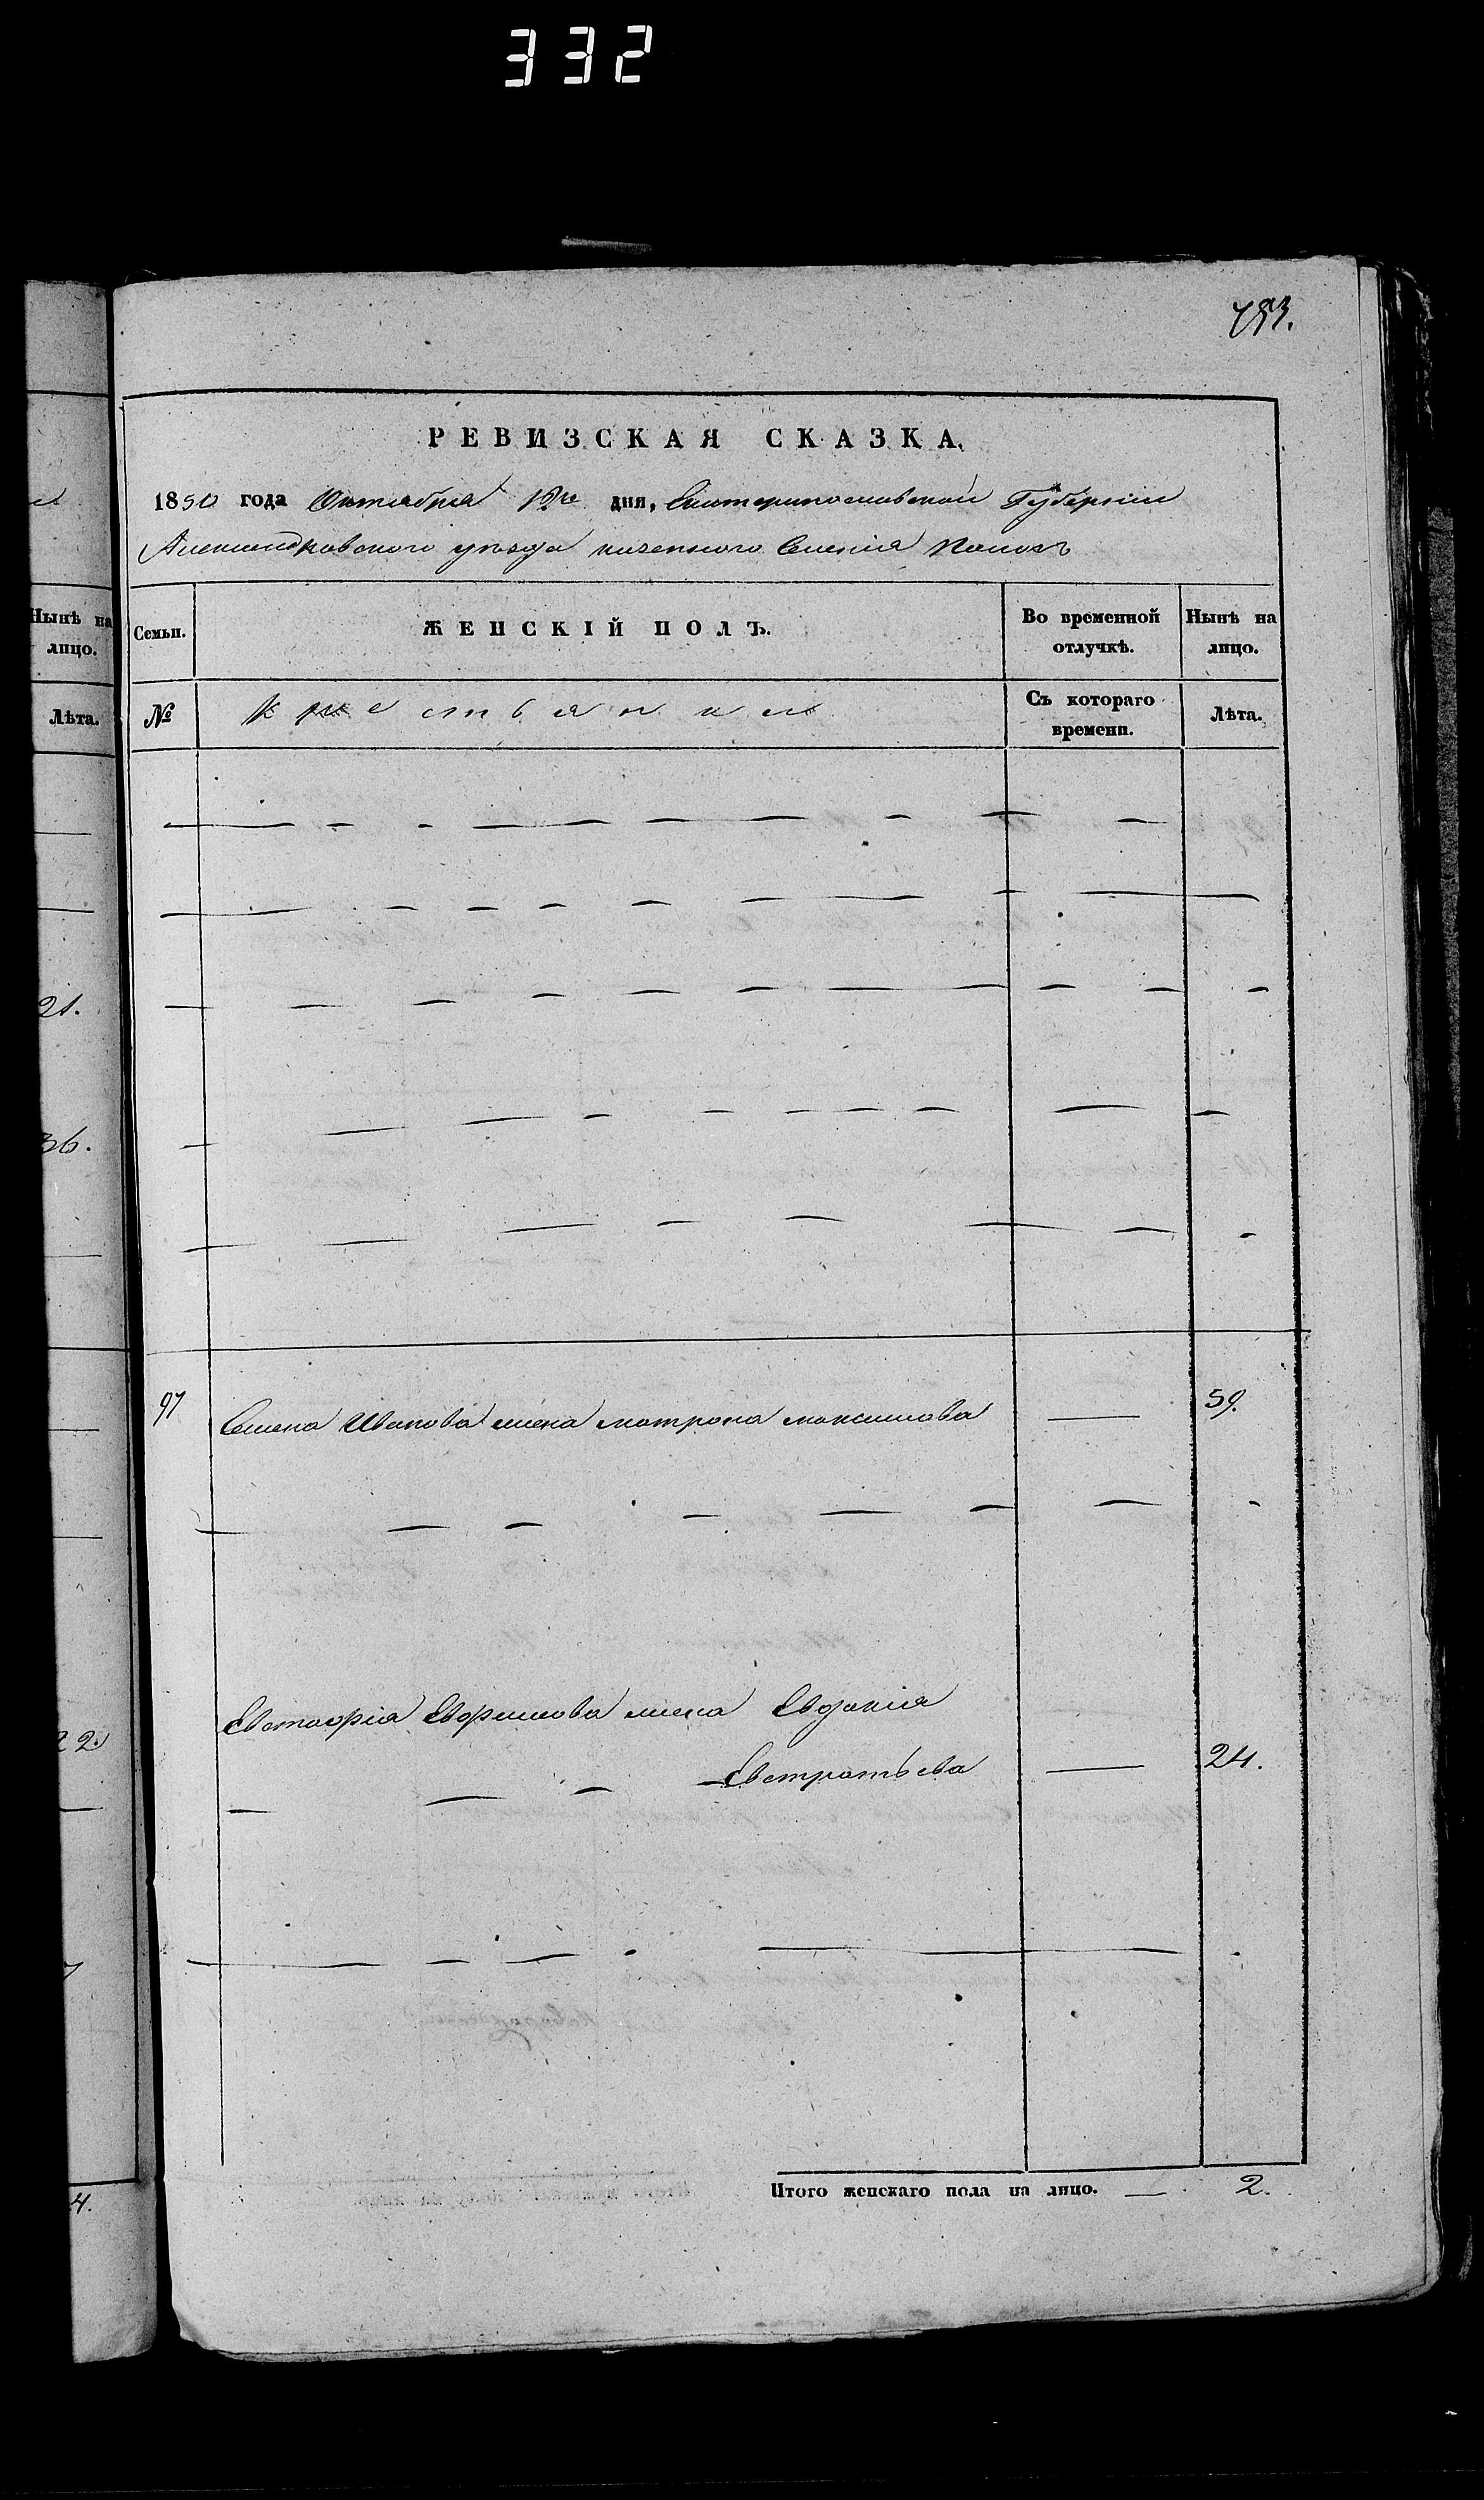 332
793.
РЕВИЗСКАЯ СКАЗКА.
1850 года Октября дня, Екатеринославской Губерніи
Александровского уѣзда казенного Селенія
Нынѣ на
лицо.
Семьи.
ЖЕНСКІЙ ПОЛЪ.
Во временной
отлучкѣ.
Нынѣ на
лицо.
Лѣта.
№
Крестьянки
Съ котораго
времени.
Лѣта.
21.
36.
97 Семена Иванова жена матрона максимова — 59.
22.
Евстафія Ефимова жена Евдокія
Евстратьева — 24.
4.
Итого женскаго пола на лицо. — 2.